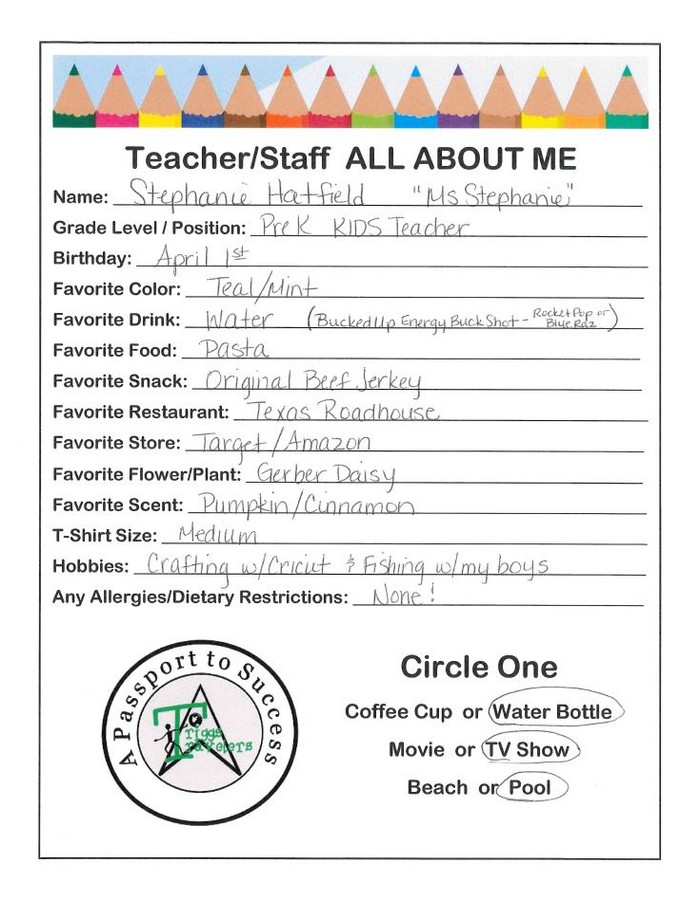 Teacher/Staff ALL ABOUT ME
Name: Stephanie Hatfield "Ms Stephanie"
Grade Level / Position: Pre K KIDS Teacher
Birthday: April 1st
Favorite Color: Teal/Mint
Favorite Drink: Water (Bucked Up Energy Buck Shot - Rocket Pop or Blue Raz)
Favorite Food: Pasta
Favorite Snack: Original Beef Jerkey
Favorite Restaurant: Texas Roadhouse
Favorite Store: Target/Amazon
Favorite Flower/Plant: Gerber Daisy
Favorite Scent: Pumpkin/Cinnamon
T-Shirt Size: Medium
Hobbies: Crafting w/Cricut & Fishing w/my boys
Any Allergies/Dietary Restrictions: None!
A Passport to Success
Triggs
Travelers
Circle One
Coffee Cup or Water Bottle
Movie or TV Show
Beach or Pool